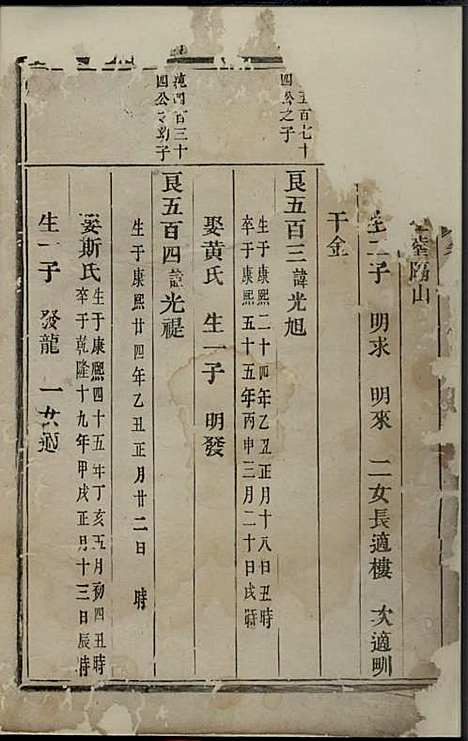 塋陽山
生二子　明求　明來　二女長適樓　次適
干金
五百七十
四公之子
良五百三諱光旭
生于康熙二十四年乙丑正月十八日丑時
卒于康熙五十五年丙申三月二十日戌時
娶黃氏　生一子　明發
百三十
四公之幼子
良五百四諱光禔
生于康熙廿四年乙丑正月廿二日　時
娶斯氏
生于康熙四十五年丁亥五月初四丑時
卒于乾隆十九年甲戌正月十三日辰時
生一子　發龍　一女適